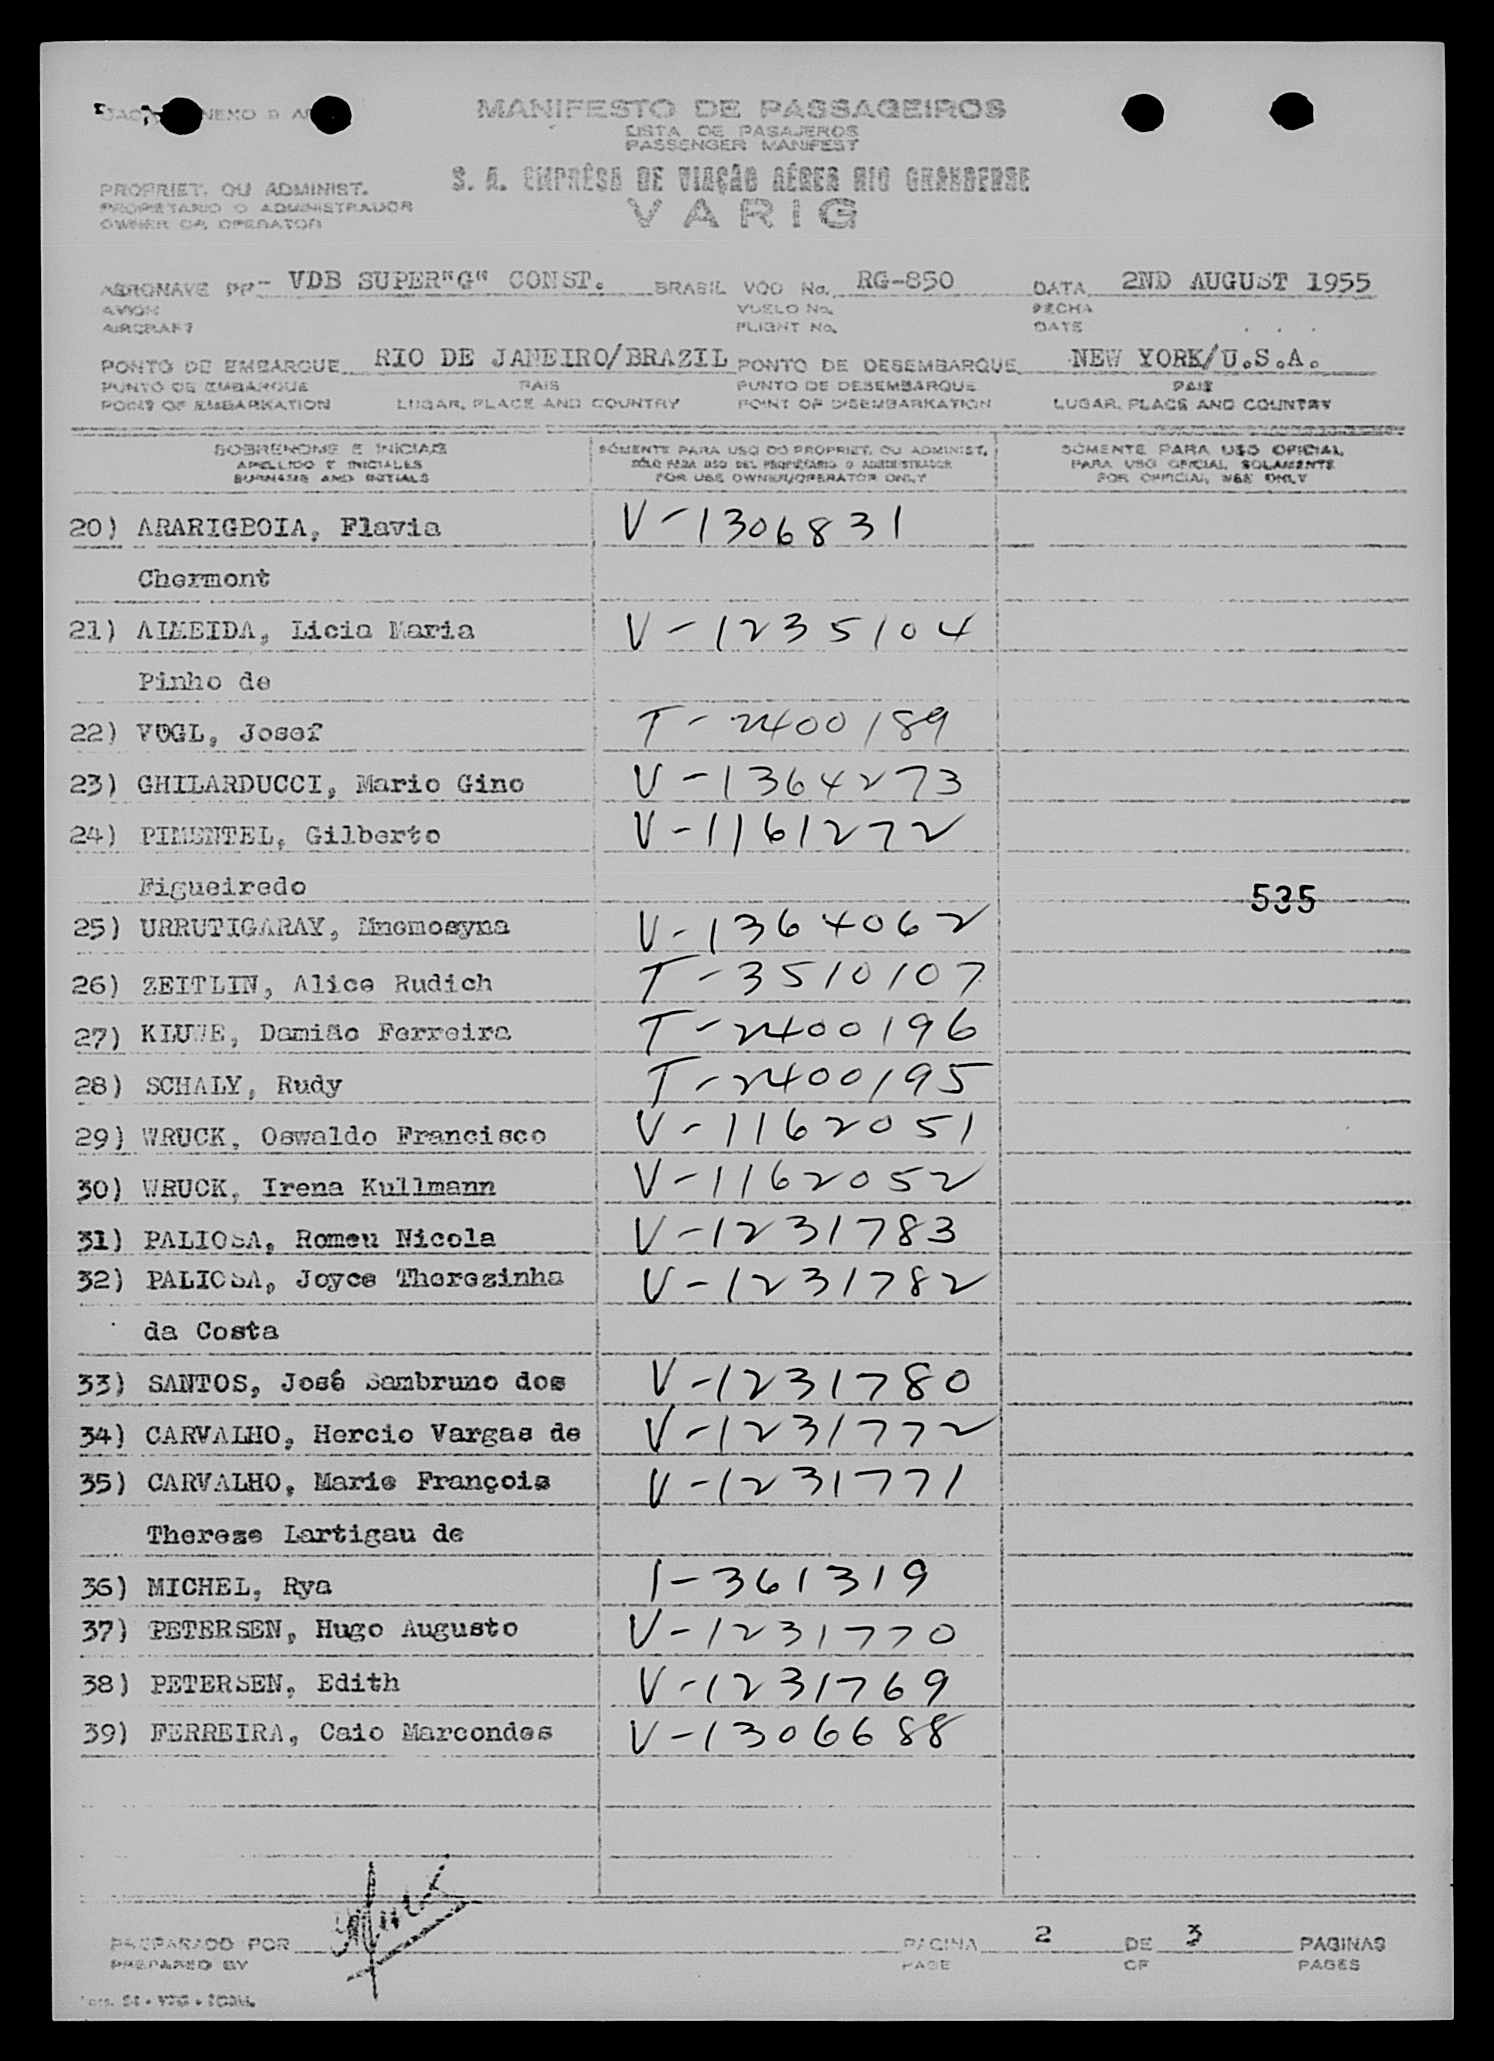 MANIFESTO DE PASSAGEIROS
LISTA DE PASAJEROS
PASSENGER MANIFEST
S. A. EMPRÊSA DE VIAÇÃO AÉREA RIO GRANDENSE
VARIG
PROPRIET. OU ADMINIST.
PROPIETARIO O ADMINISTRADOR
OWNER OR OPERATOR
AERONAVE PP- VDB SUPER"G" CONST. BRASIL VÔO No. RG-850 DATA 2ND AUGUST 1955
AVION VUELO No. FECHA
AIRCRAFT FLIGHT No. DATE
PONTO DE EMBARQUE RIO DE JANEIRO/BRAZIL PONTO DE DESEMBARQUE NEW YORK/U.S.A.
PUNTO DE EMBARQUE PAIS PUNTO DE DESEMBARQUE PAIS
POINT OF EMBARKATION LUGAR, PLACE AND COUNTRY POINT OF DISEMBARKATION LUGAR, PLACE AND COUNTRY
SOBRENOME E INICIAIS SÓMENTE PARA USO DO PROPRIET. OU ADMINIST. SÓMENTE PARA USO OFICIAL
APELLIDO E INICIALES SÓLO PARA USO DEL PROPIETARIO O ADMINISTRADOR PARA USO OFICIAL SOLAMENTE
SURNAME AND INITIALS FOR USE OWNER/OPERATOR ONLY FOR OFFICIAL USE ONLY
20) ARARIGBOIA, Flavia V-1306831
Chermont
21) ALMEIDA, Licia Maria V-1235104
Pinho de
22) VOGL, Josef T-2400189
23) GHILARDUCCI, Mario Gino V-1364273
24) PIMENTEL, Gilberto V-1161272
Figueiredo 535
25) URRUTIGARAY, Mnemosyna V-1364062
26) ZEITLIN, Alice Rudich T-3510107
27) KLUWE, Damião Ferreira T-2400196
28) SCHALY, Rudy T-2400195
29) WRUCK, Oswaldo Francisco V-1162051
30) WRUCK, Irena Kullmann V-1162052
31) PALIOSA, Romeu Nicola V-1231783
32) PALIOSA, Joyce Therezinha V-1231782
da Costa
33) SANTOS, José Sambruno dos V-1231780
34) CARVALHO, Hercio Vargas de V-1231772
35) CARVALHO, Marie François V-1231771
Therese Lartigau de
36) MICHEL, Rya I-361319
37) PETERSEN, Hugo Augusto V-1231770
38) PETERSEN, Edith V-1231769
39) FERREIRA, Caio Marcondes V-1306688
PREPARADO POR PAGINA 2 DE 3 PAGINAS
PREPARED BY PAGE OF PAGES